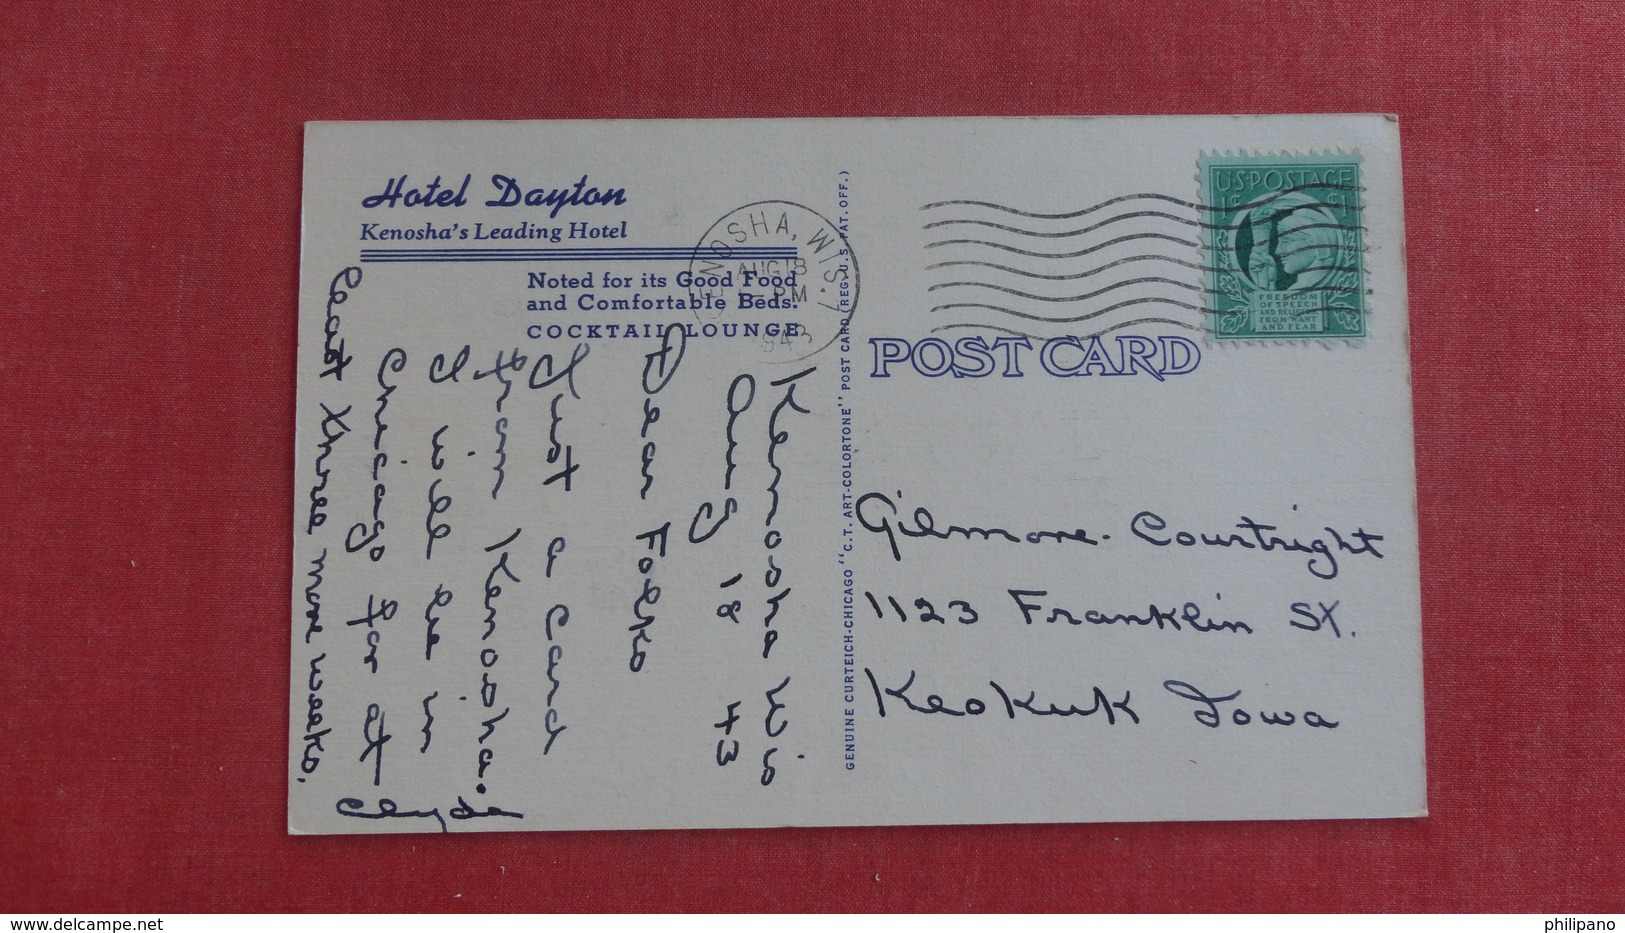 Hotel Dayton
Kenosha's Leading Hotel
Noted for its Good Food
and Comfortable Beds.
COCKTAIL LOUNGE
KENOSHA, WIS.
AUG 18
PM
1943
U.S. POSTAGE
1¢ ¢1
FREEDOM
OF SPEECH
AND RELIGION
FROM WANT
AND FEAR
POST CARD
GENUINE CURTEICH-CHICAGO "C.T. ART-COLORTONE" POST CARD (REG. U.S. PAT. OFF.)
Kenosha Wis
Aug 18 43
Dear Folks
Just a card
from Kenosha.
I will be in
Chicago for at
least three more weeks.
Clyde
Gilmore Courtright
1123 Franklin St.
Keokuk Iowa
philipano